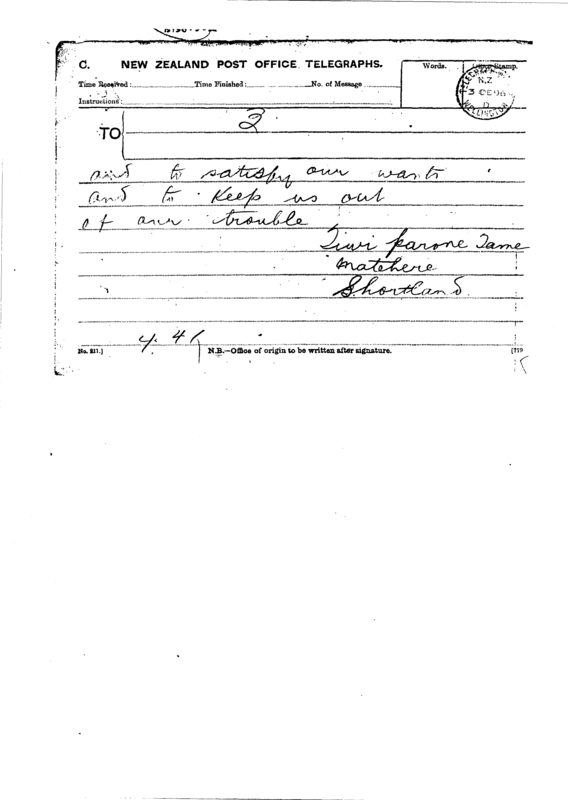 C. NEW ZEALAND POST OFFICE TELEGRAPHS.
Words.
Office Stamp.
Time Received: Time Finished: No. of Message
Instructions:
TELEGRAPH
N.Z
3 DE 96
D
WELLINGTON
TO 2
and to satisfy our wants
and to Keep us out
of our trouble
Tiwi parone Tame
matehere
Shortland
4. 41
No. 211.) N.B.—Office of origin to be written after signature.